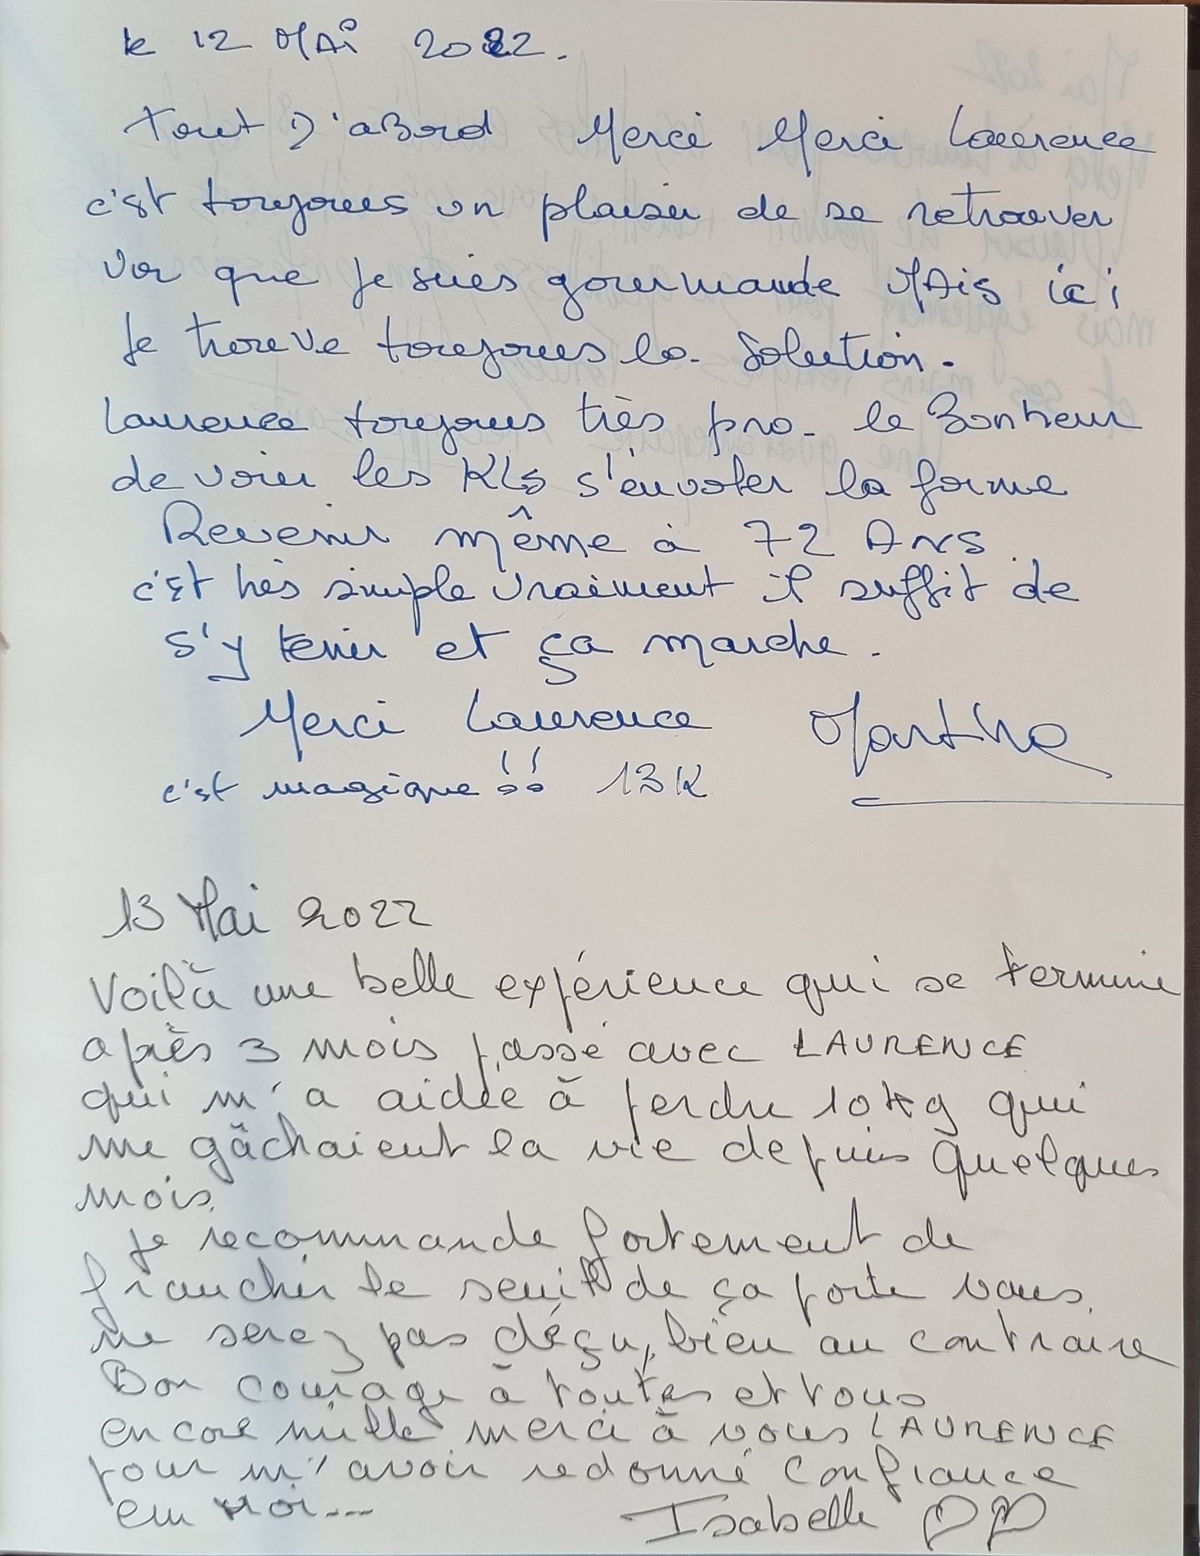 le 12 MAi 2022.
Tout D'aBord Merci Merci Laurence
c'est toujours un plaisir de se retrouver
Vor que Je suis gourmande MAis ici
Je trouve toujours la Solution.
Laurence toujours très pro. le Bonheur
de voir les KLs s'envoler la forme
Revenir même à 72 ANS.
c'est très simple vraiment il suffit de
s'y tenir et ça marche.
Merci Laurence Martine
c'est magique !! 13K
13 Mai 2022
Voilà une belle expérience qui se termine
après 3 mois passé avec LAURENCE
qui m'a aidée à perdre 10kg qui
me gâchaient la vie depuis quelques
mois.
Je recommande fortement de
franchir le seuil de ça porte vous
ne serez pas déçu, bien au contraire
Bon courage à toutes et tous
encore mille merci à vous LAURENCE
pour m'avoir redonné confiance
en moi...
Isabelle